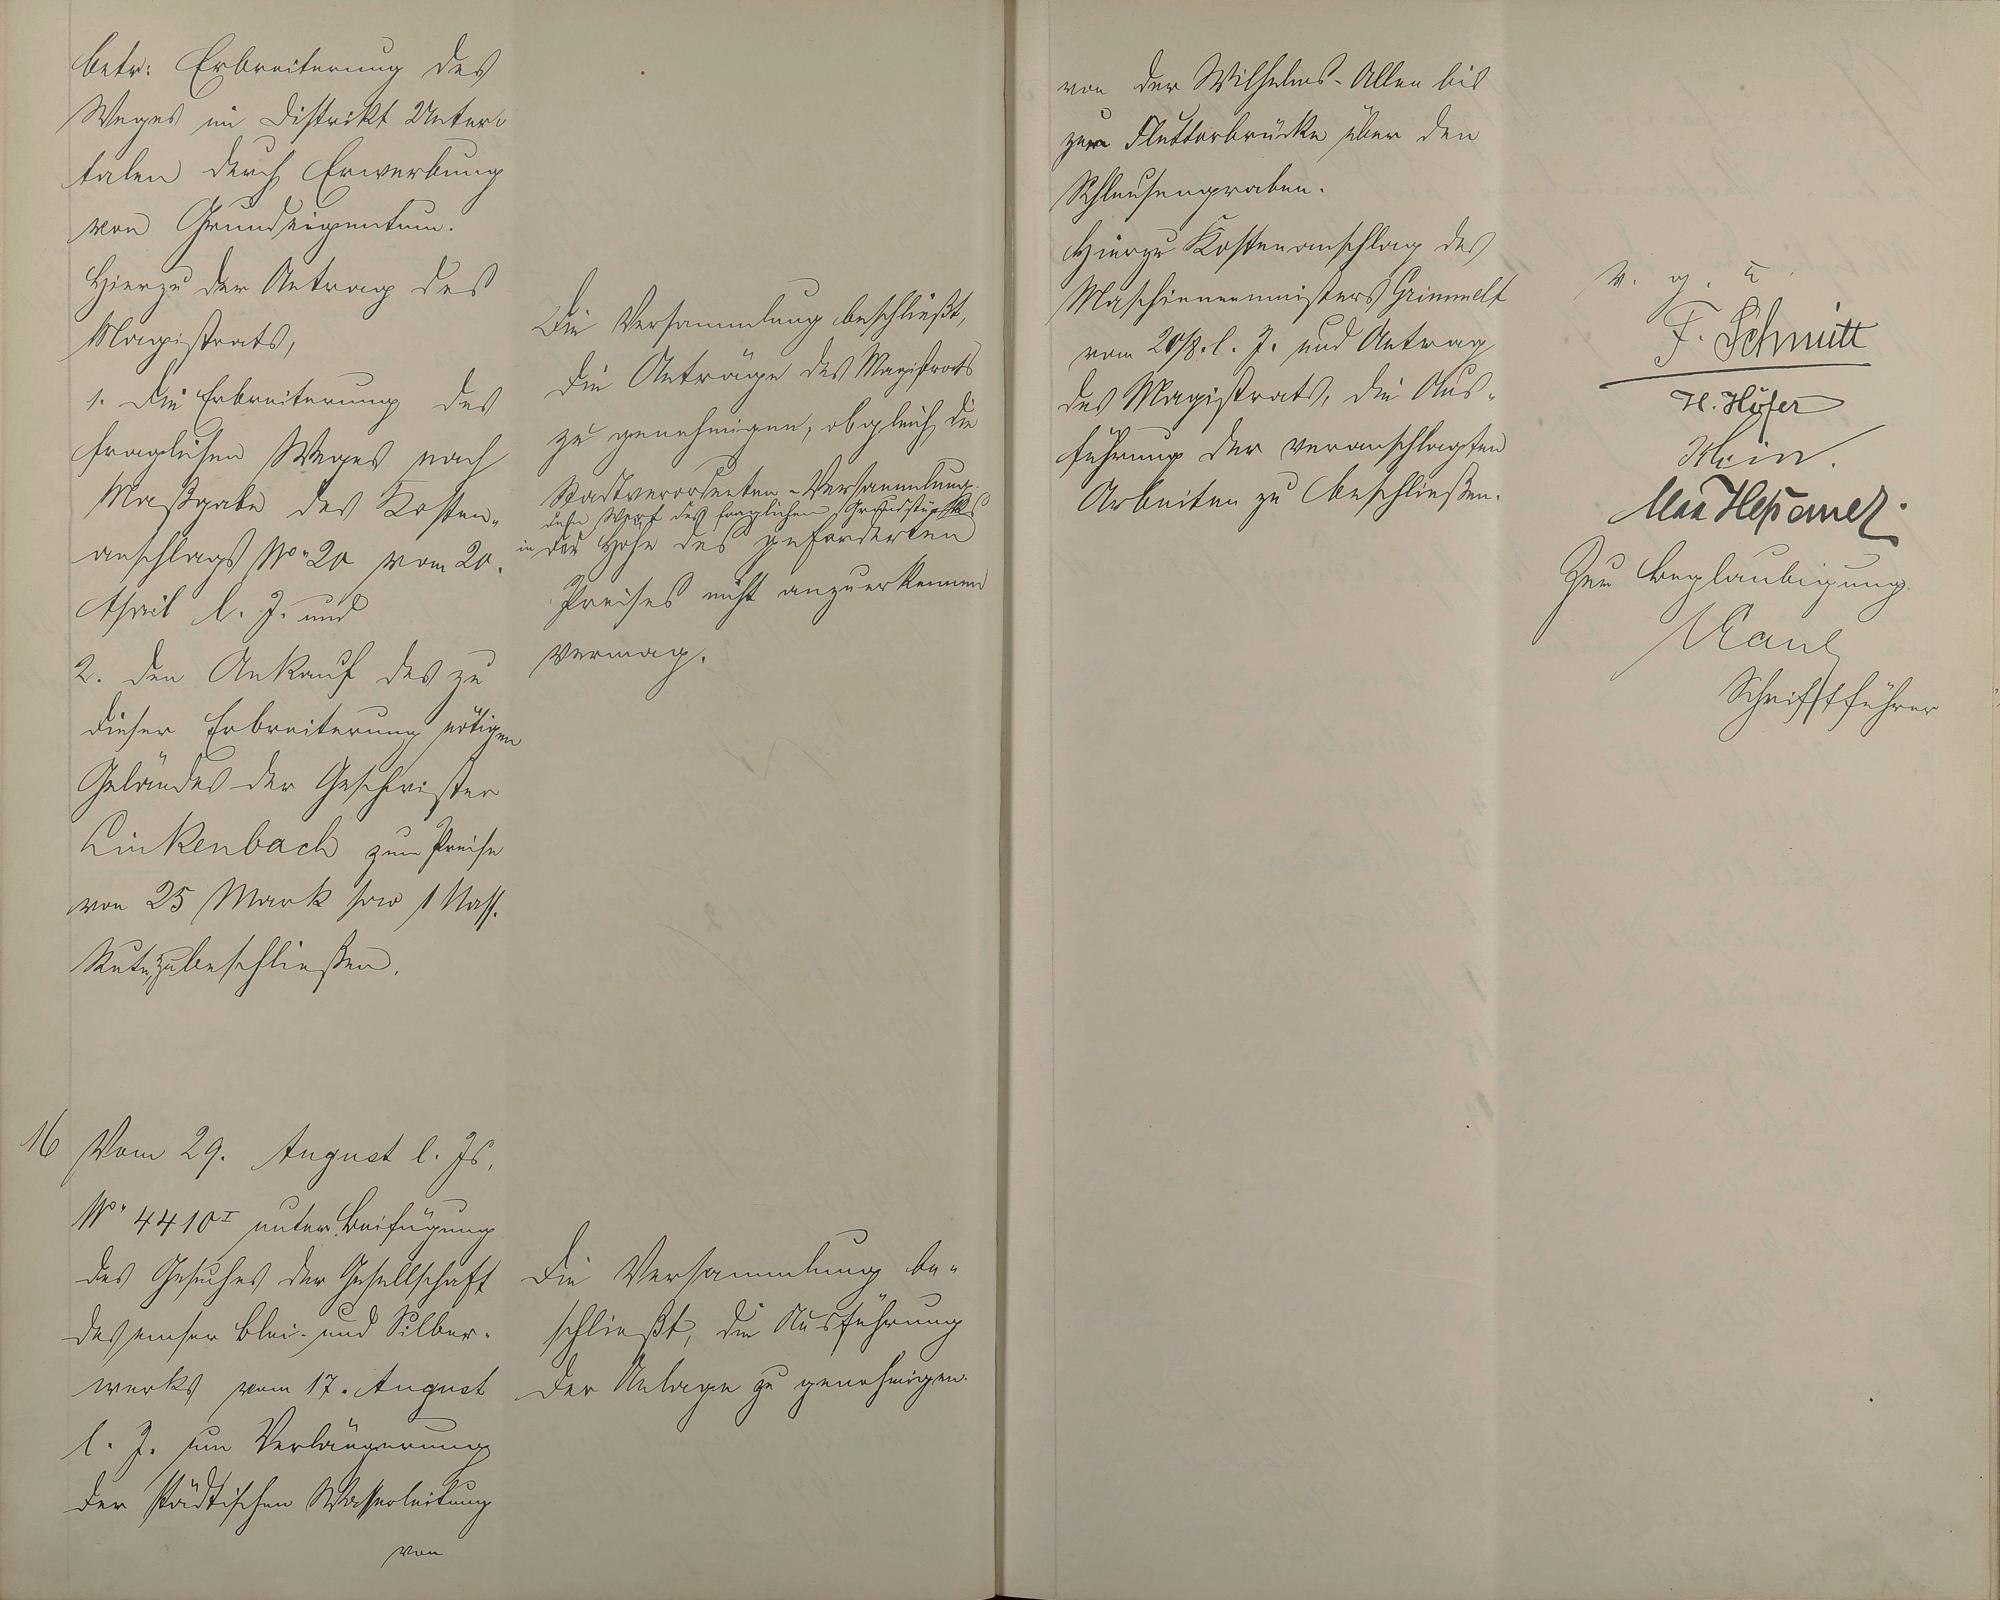 betr: Erbreiterung des
Weges im Distrikt Unter-
talen durch Erwerbung
von Grundeigentum.
Hierzu der Antrag des
Magistrats,
1. die Erbreiterung des
fraglichen Weges nach
Maßgabe des Kosten-
anschlags No 20 vom 20.
April l. J. und
2. den Ankauf des zu
dieser Erbreiterung nötigen
Geländes der Geschwister
Linkenbach zum Preise
von 25 Mark pro 1 Nass.
Rute, zu beschließen.
Die Versammlung beschließt,
die Anträge des Magistrats
zu genehmigen, obgleich die
Stadtverordneten-Versammlung
den Wert des fraglichen Grundstücks
in der Höhe des geforderten
Preises nicht anzuerkennen
vermag.
16 Vom 29. August l. Js.
No 4410 I unter Beifügung
des Gesuches der Gesellschaft
des emser Blei- und Silber-
werks vom 17. August
l. J. um Verlängerung
der städtischen Wasserleitung
von
Die Versammlung be-
schließt, die Ausführung
der Anlage zu genehmigen.
von der Wilhelms-Allee bis
zur Flutterbrücke über den
Schleusengraben.
Hierzu Kostenanschlag des
Maschinenmeisters Grimmelt
vom 20/8. l. J. und Antrag
des Magistrats, die Aus-
führung der veranschlagten
Arbeiten zu beschließen.
v. g. u.
F. Schmitt
H. Höfer
Klein.
Max
Zur Beglaubigung.
Kaul
Schriftführer